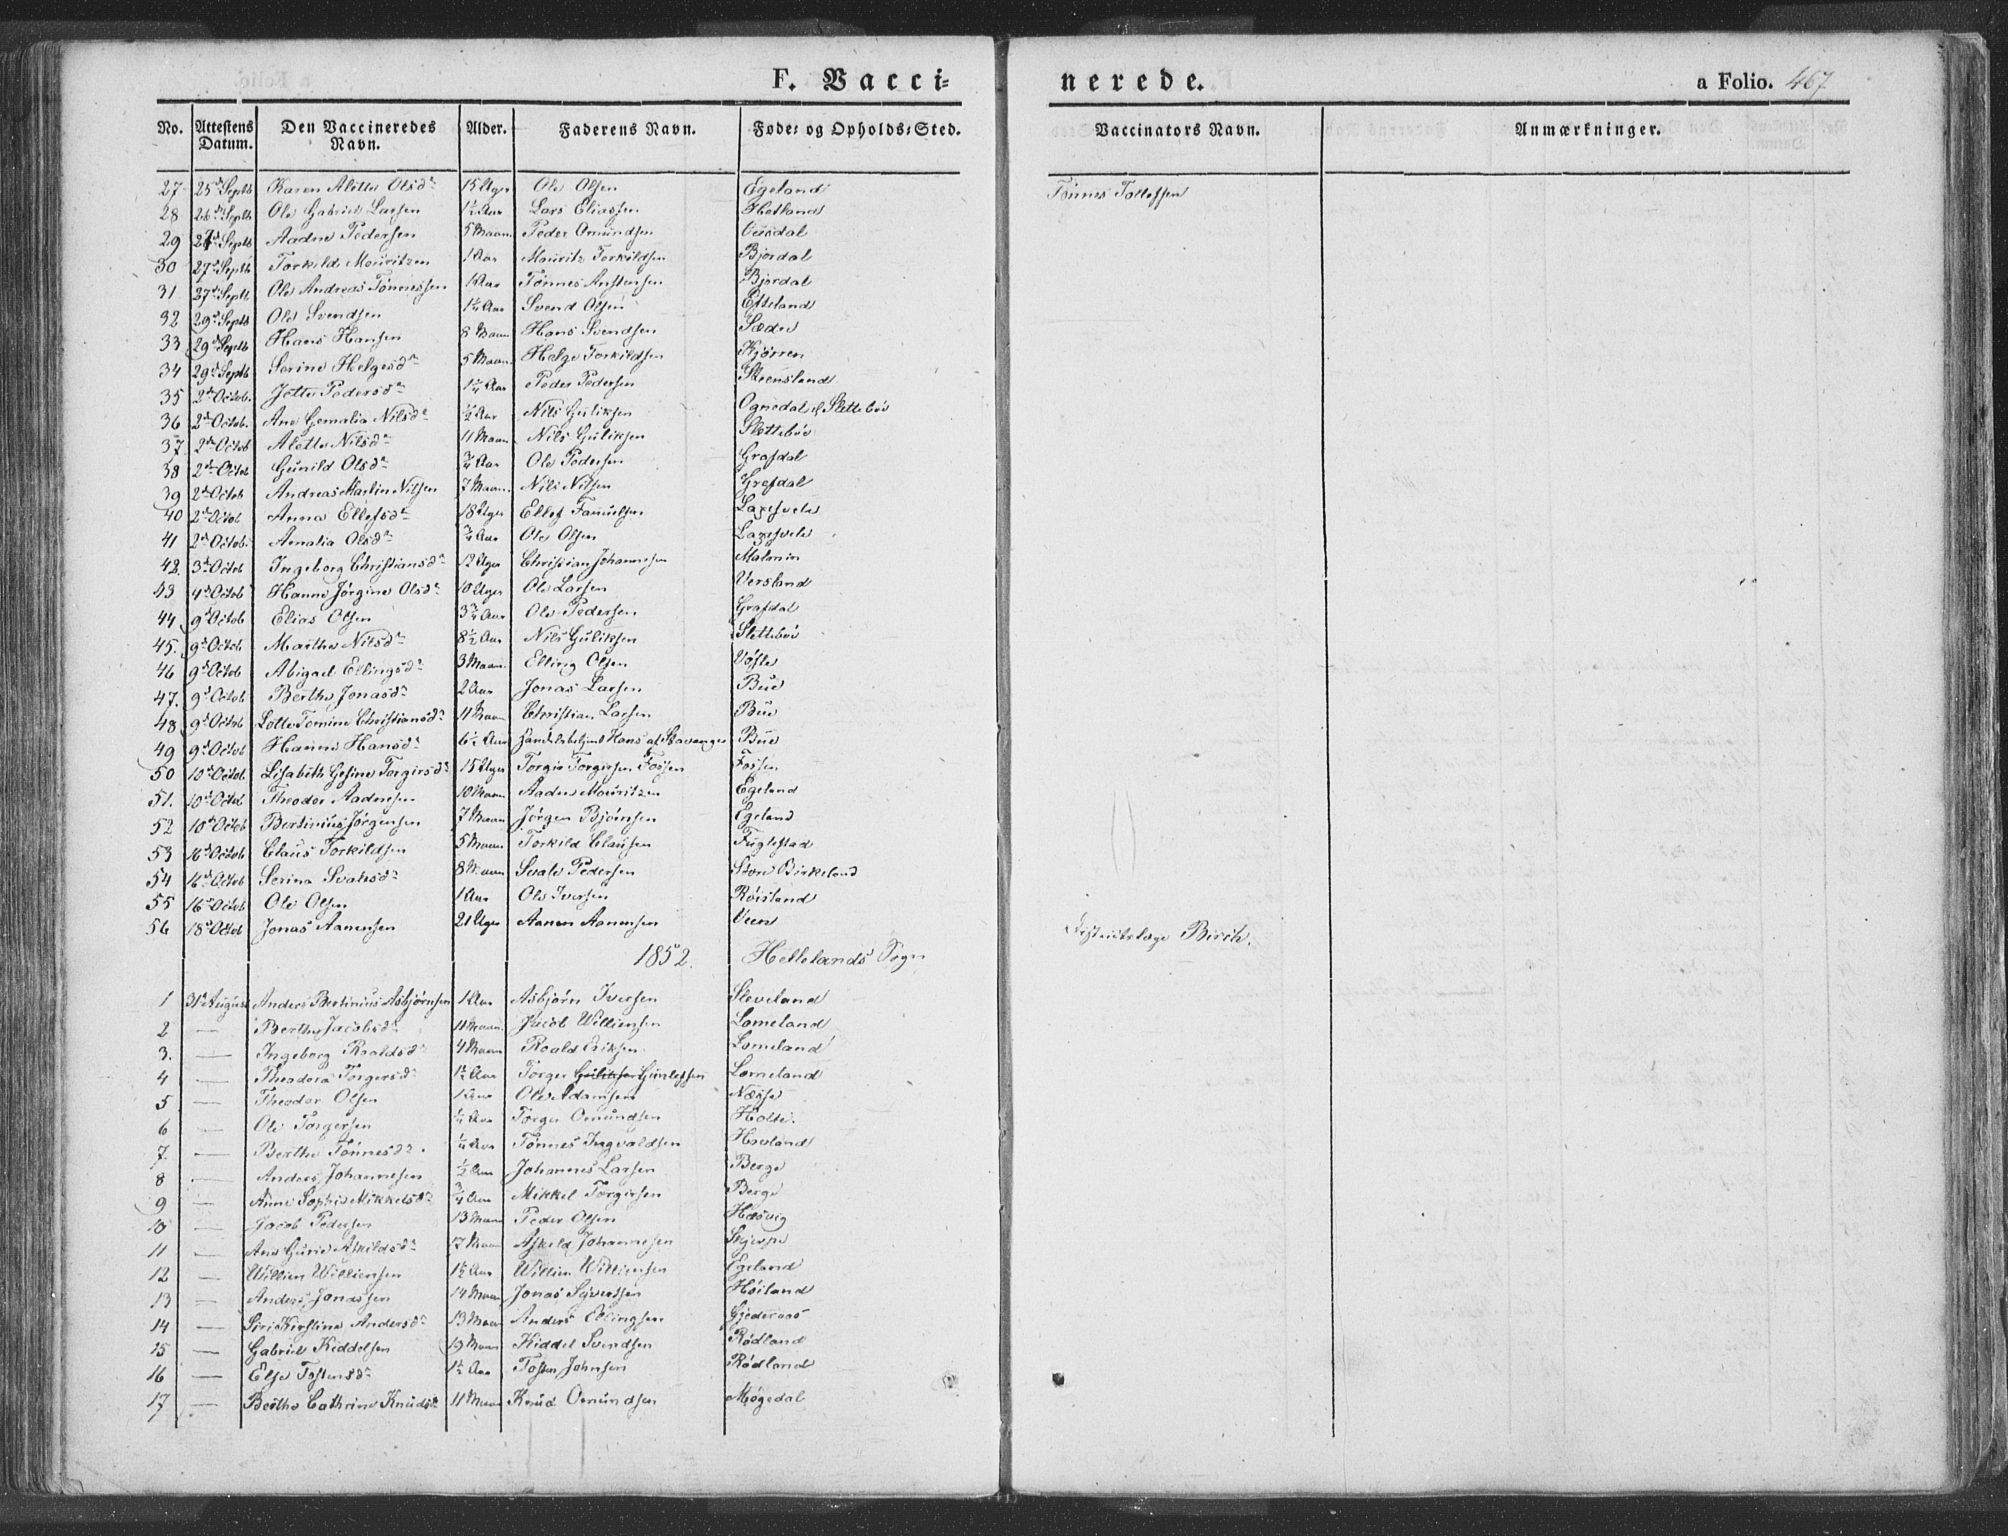 F. Vacci-
nerede.
a Folio. 467
No. Attestens Datum. Den Vaccineredes Navn. Alder. Faderens Navn. Føde- og Opholds-Sted. Vaccinators Navn. Anmærkninger.
27 25de Septb Karen Alethe Olsdr 15 Uger Ole Olsen Egeland Tønnes Tollefsen
28 26de Septb Ole Gabriel Larsen 1½ Aar Lars Eliassen Hetland
29 27de Septb Aadne Pedersen 5 Maan Peder Omundsen
30 27de Septb Torkild Mouritzen 1 Aar Mouritz Torkildsen Bjordal
31 27de Septb Ole Andreas Tønnessen 1 Aar Tønnes Anstensen Bjordal
32 29de Septb Ole Svendsen 1¼ Aar Svend Olsen Efteland
33 29de Septb Hans Hansen 8 Maan Hans Svendsen Sædne
34 29de Septb Serine Helgesdr 5 Maan Helge Torkildsen Kjørren
35 2de Octob. Jette Pedersdr 1¼ Aar Peder Pedersen Steensland
36 2de Octob. Ane Gemalia Nilsdr ½ Aar Nils Guliksen Ognedal & Slettebøe
37. 2de Octob Alethe Nilsdr 11 Maan Nils Guliksen Slettebøe
38 2de Octob Gunild Olsdr ¾ Aar Ole Pedersen Grafdal
39 2de Octob Andreas Martin Nilsen 7 Maan. Nils Nilsen Grafdal
40 2de Octob Anna Ellefsdr 18 Uger Ellef Samuelsen Laxesvele
41 2de Octob. Amalia Olsdr ¾ Aar Ole Olsen Laxesvele
42. 3de Octob Ingeborg Christiansdr 12 Uger Christian Johannesen Malmin
43 4de Octob Hanne Jørgine Olsdr 10 Uger Ole Larsen Versland
44 9de Octob Elias Olsen 3¾ Aar Ole Pedersen Grafdal
45. 9de Octob Marthe Nilsdr 8½ Aar Nils Guliksen Slettebøe
46 9de Octob Abigael Ellingsdr 3 Maan. Elling Olsen
47. 9de Octob Berthe Jonasdr 2 Aar Jonas Larsen Bue
48 9de Octob Lotte Tomine Christiansdr 11 Maan Christian Larsen Bue
49 9de Octob Hanne Hansdr 6½ Aar Handelsbetjent Hans af Stavanger Bue
50 10de Octob Lisabeth Gesine Torgirsdr 15 Uger Torgir Torgirsen Fossen Fossen
51. 10de Octob Theodor Aadnesen 10 Maan Aadne Mouritzen Egeland
52 10de Octob Bertinius Jørgensen 7 Maan Jørgen Bjørnsen Egeland
53 16de Octob Claus Torkildsen 5 Maan Torkild Clausen Fuglestad
54 16de Octob Serina Svalesdr 8 Maan Svale Pedersen Store Birkeland
55 16de Octob Ole Olsen 1 Aar Ole Iversen Røisland
56 18de Octob Jonas Aanensen 21 Uger Aanen Aanensen Veen Districtslæge Birch.
1852. Hellelands Sogn
1 31te August Anders Bertinius Asbjørnsen 1 Aar Asbjørn Iversen Sleveland
2 — Berthe Jacobsdr 11 Maan Jacob Williensen Lomeland
3. — Ingeborg Roaldsdr 4 Maan Roald Eriksen Lomeland
4 — Theodora Torgersdr 1½ Aar Torger Guliksen Gunlefsen Lomeland
5 — Theodor Olsen Ole Adamsen Næsse
6 — Ole Torgersen ¼ Aar Torger Omundsen Holte
7. — Berthe Tønnesdr ¼ Aar Tønnes Ingvaldsen Hovland
8 — Anders Johannesen ½ Aar Johannes Larsen Berge
9 — Anne Sophie Mikkelsdr ¾ Aar Mikkel Torgirsen Berge
10 — Jacob Pedersen 13 Maan Peder Olsen Hæsvig
11 — Ane Gurie Askildsdr 17 Maan Askild Johannesen Skjerpe
12 — Willien Williensen 1½ Aar Willien Williensen Egeland
13 — Anders Jonassen 14 Maan Jonas Syvertsen Høiland
14 — Siri Kirstine Andersdr 13 Maan Anders Ellingsen Gjederaas
15 — Gabriel Kiddelsen 19 Maan Kiddel Svendsen Rødland
16 — Else Tostensdr 1½ Aar Tosten Johnsen Rødland
17 — Berthe Cathrine Knudsdr 11 Maan Knud Omundsen Møgedal